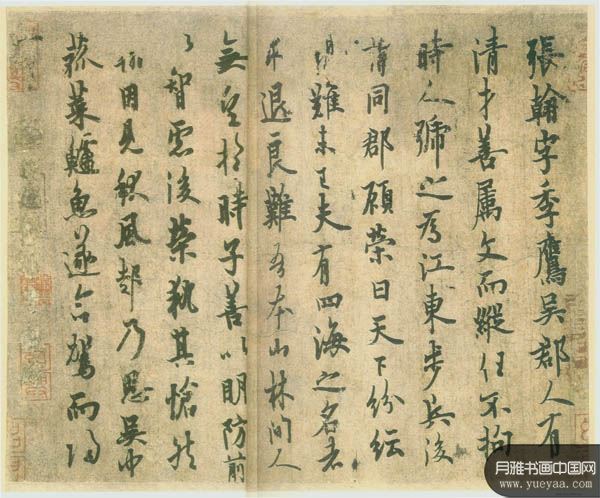 張翰字季鷹吳郡人有
清才善屬文而縱任不拘
時人號之為江東步兵後
謂同郡顧榮曰天下紛紜
禍難未已夫有四海之名者
求退良難吾本山林間人
無望於時子善以明防前
以智慮後榮執其愴然
翰因見秋風起乃思吳中
菰菜鱸魚遂命駕而歸
月雅书画中国网
www.yueyaa.com